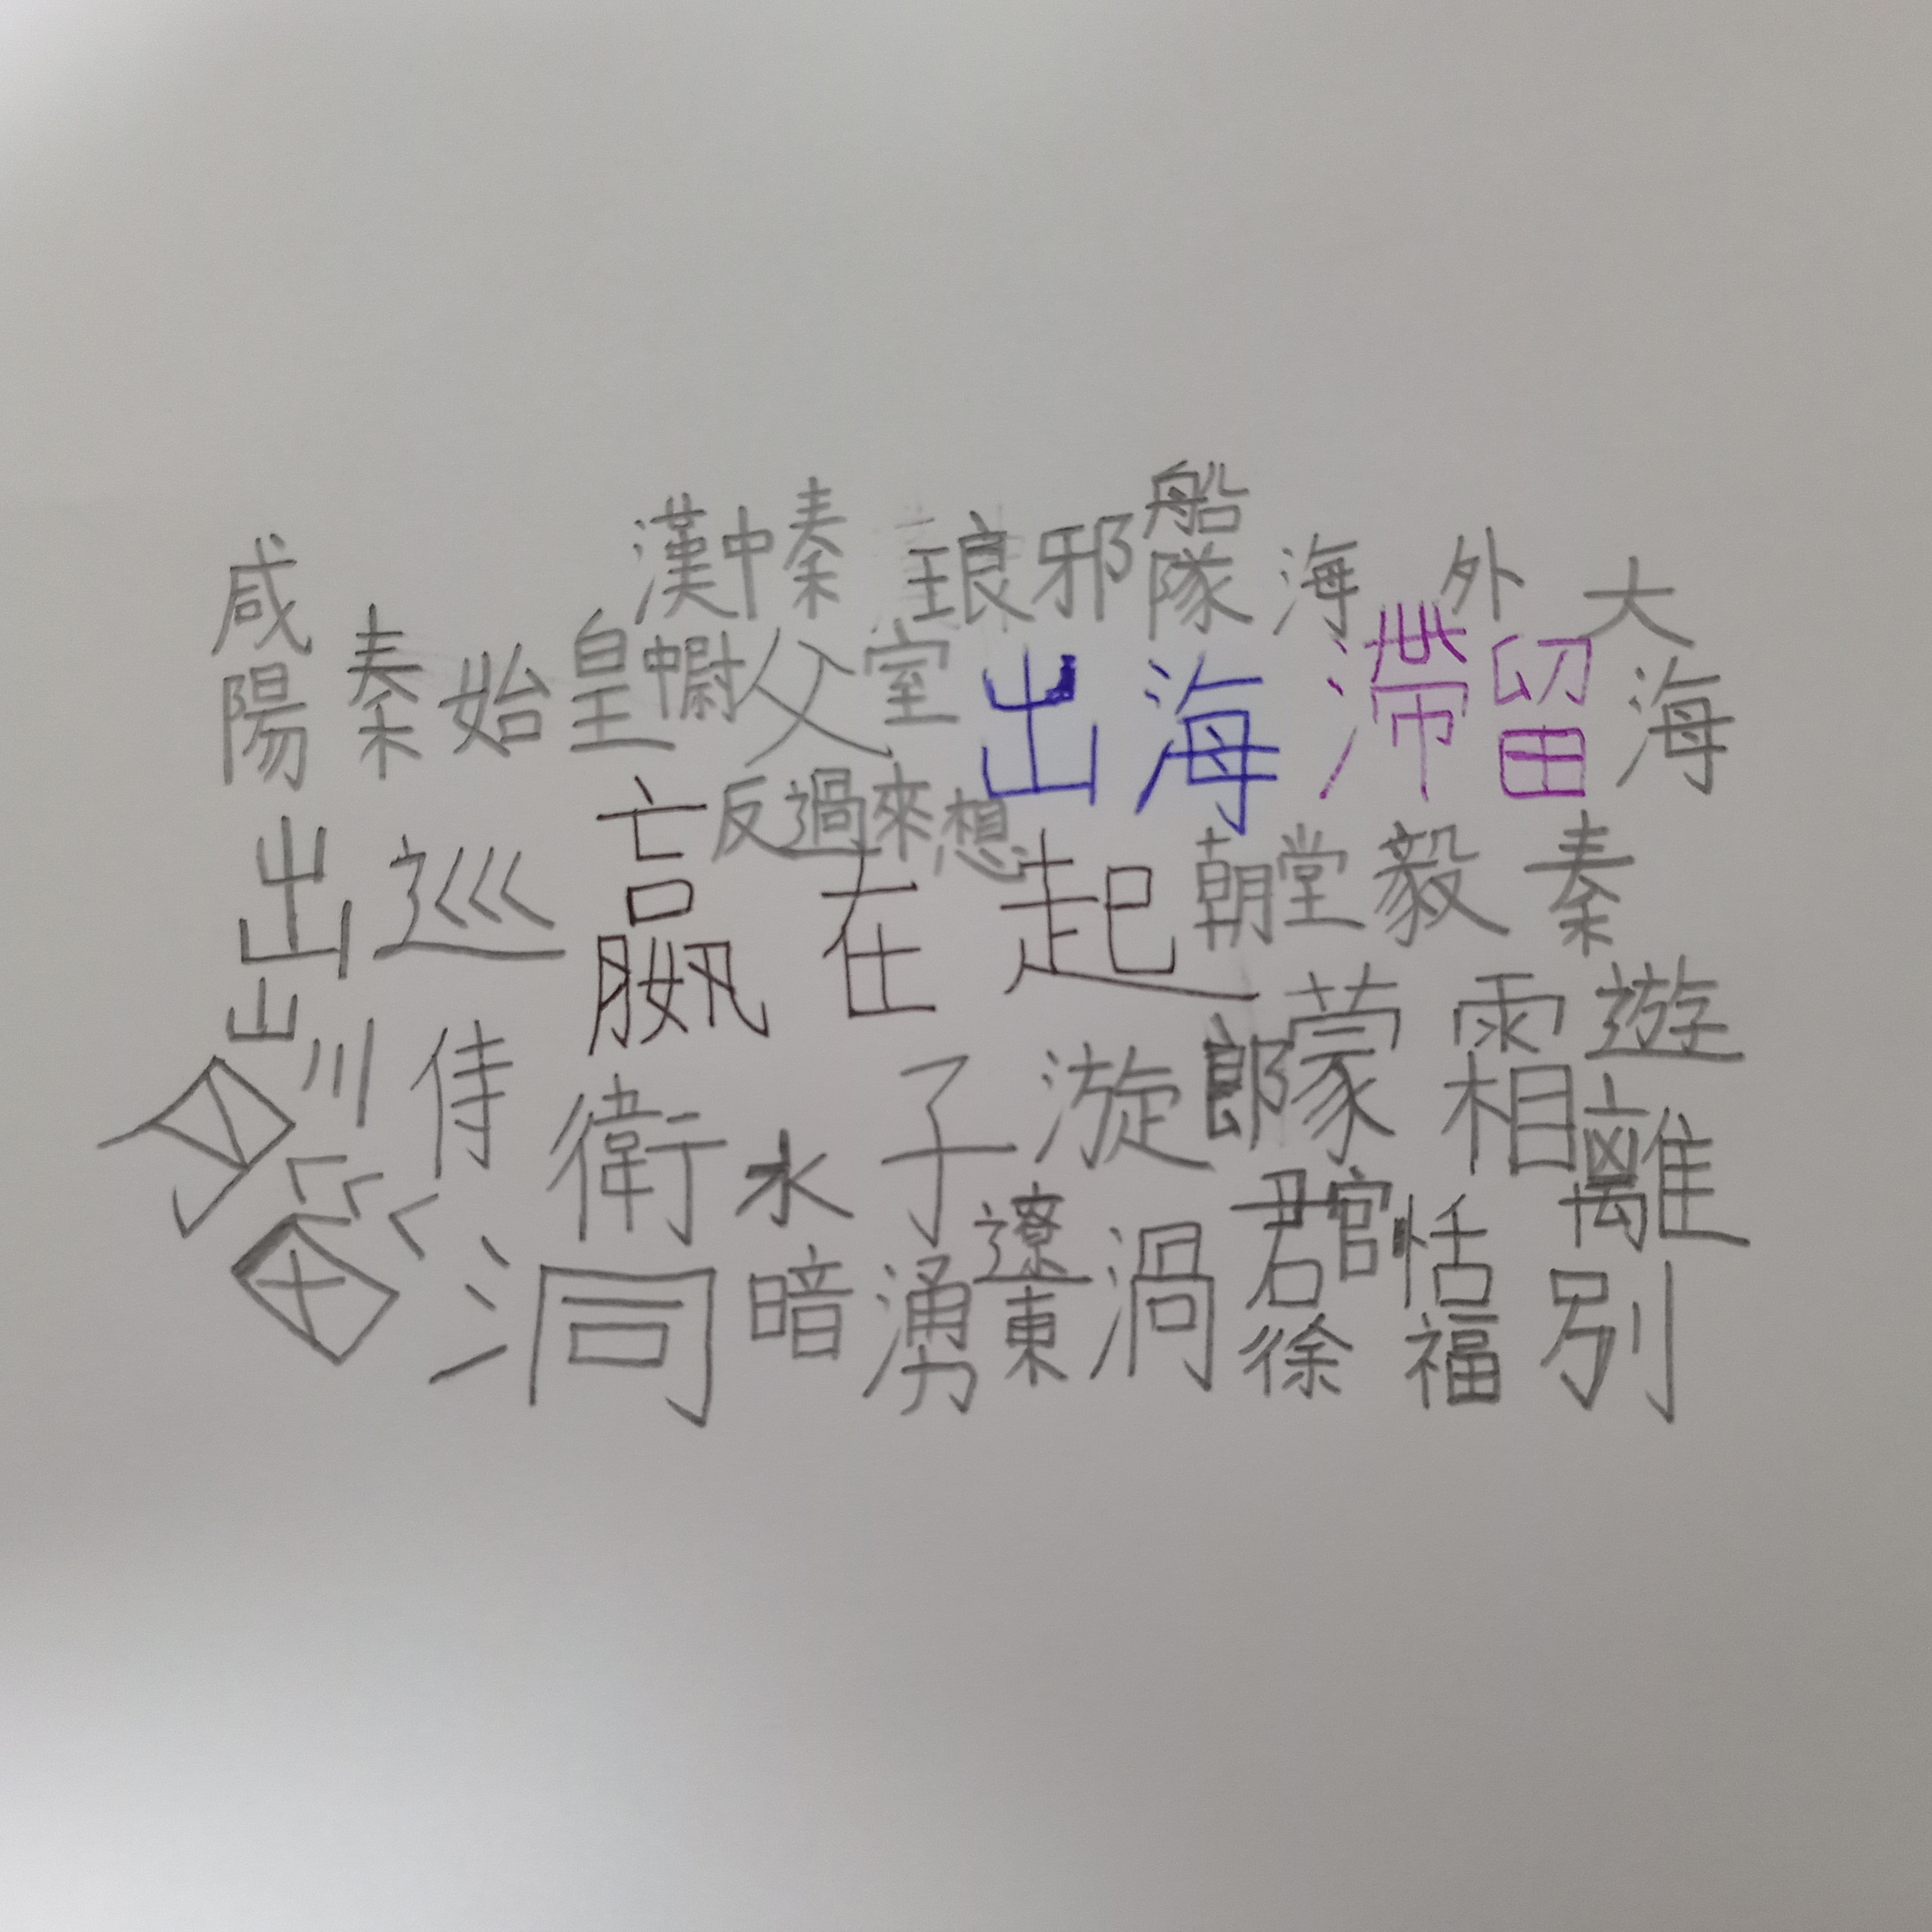 漢中秦 琅邪船隊 海外 大海
咸陽 秦始皇 父室 出海 滯留
反過來想
出巡 嬴在起 朝堂 毅 秦
山川 侍衛 水 子 漩 郎 蒙 霜 遊
離別
洞 暗湧 遼東 渦 君 官 恬
徐福